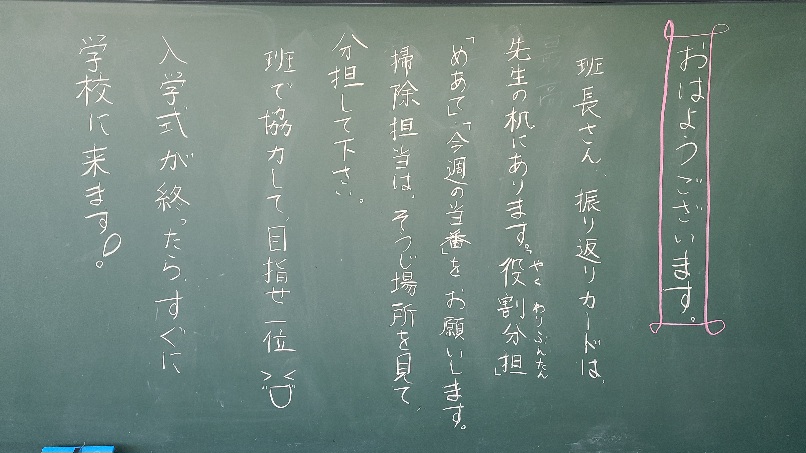 おはようございます。
班長さん、振り返りカードは、
先生の机にあります。「役割分担」
やく わりぶんたん
「めあて」「今週の当番」をお願いします。
掃除担当は、そうじ場所を見て、
分担して下さい。
班で協力して、目指せ一位
入学式が終ったら、すぐに
学校に来ます。